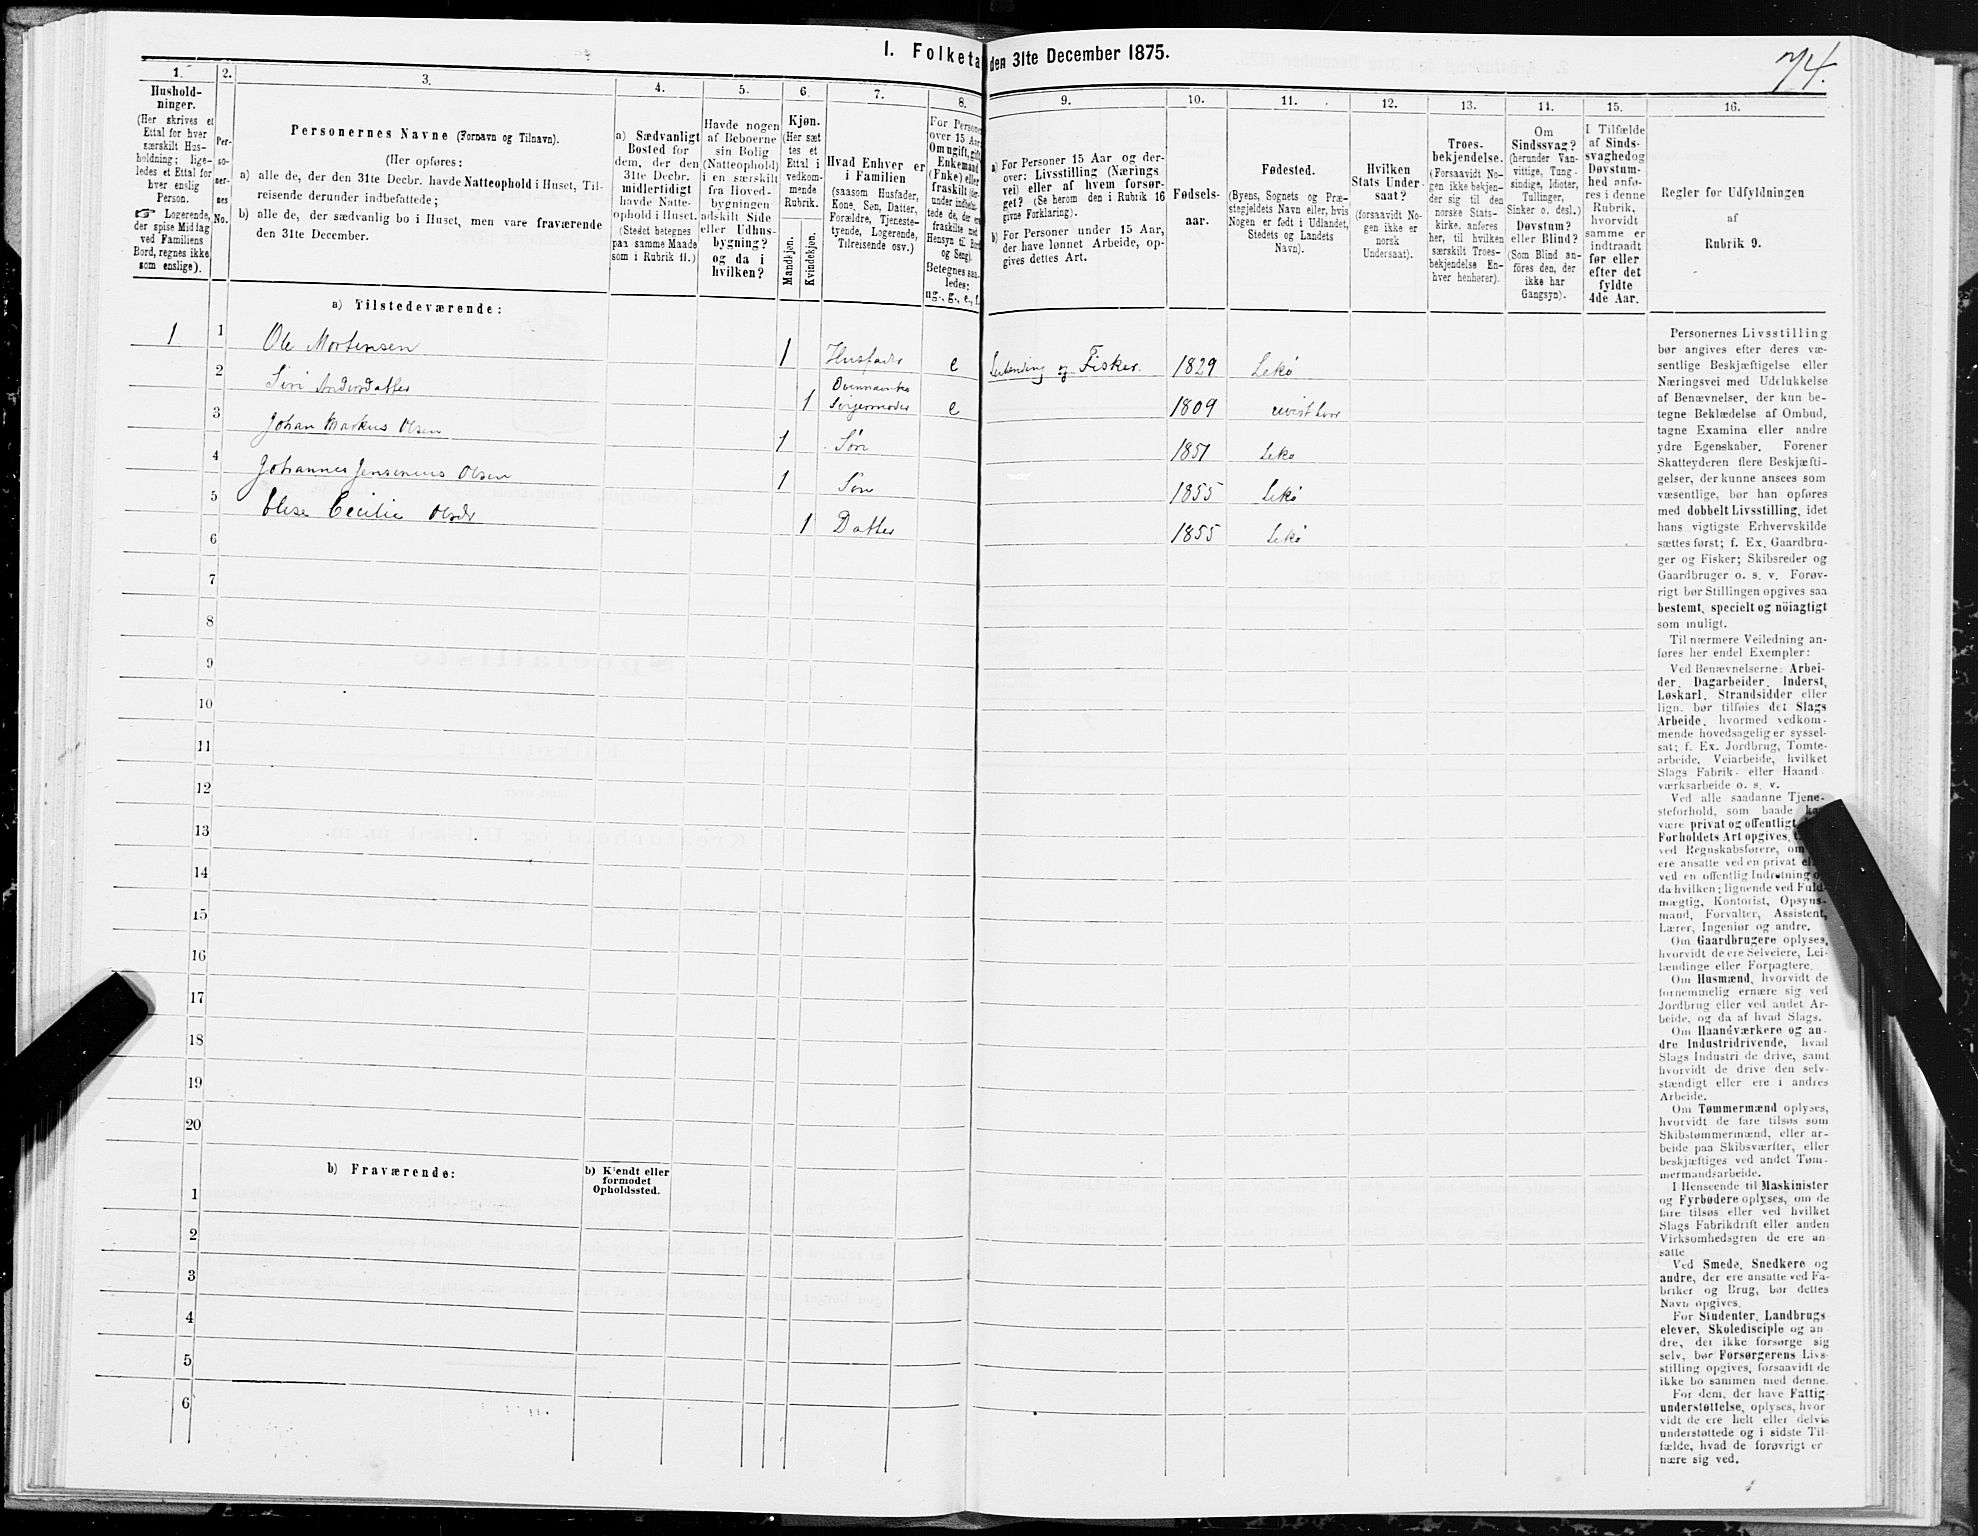 I. Folketa den 31te December 1875.
74.
1.
Hushold-
ninger.
(Her skrives et
Ettal for hver
særskilt Hus-
holdning; lige-
ledes et Ettal for
hver enslig
Person.
☞ Logerende,
der spise Middag
ved Familiens
Bord, regnes ikke
som enslige).
2.
Per-
so-
ner-
nes
No.
3.
Personernes Navne (Fornavn og Tilnavn).
(Her opføres:
a) alle de, der den 31te Decbr. havde Natteophold i Huset, Til-
reisende derunder indbefattede;
b) alle de, der sædvanlig bo i Huset, men vare fraværende
den 31te December.
4.
a) Sædvanligt
Bosted for
dem, der den
31te Decbr.
midlertidigt
havde Natte-
ophold i Huset.
(Stedet betegnes
paa samme Maade
som i Rubrik 11.)
5.
Havde nogen
af Beboerne
sin Bolig
(Natteophold)
i en særskilt
fra Hoved-
bygningen
adskilt Side
eller Udhus-
bygning?
og da i
hvilken?
6.
Kjøn.
(Her sæt
tes et
Ettal i
vedkom-
mende
Rubrik.
Mandkjøn.
Kvindekjøn.
7.
Hvad Enhver er
i Familien
(saasom Husfader,
Kone, Søn, Datter,
Forældre, Tjeneste-
tyende, Logerende,
Tilreisende osv.)
8.
For Persone
over 15 Aar
Om ugift, gift
Enkemand
(Enke) eller
fraskilt (der-
under indbefat-
tede de, der ere
fraskilte med
Hensyn til Bord
og Seng).
Betegnes saa-
ledes:
ug., g., e., f.
9.
a) For Personer 15 Aar og der-
over: Livsstilling (Nærings
vei) eller af hvem forsør-
get? (Se herom den i Rubrik 16
givne Forklaring).
b) For Personer under 15 Aar,
der have lønnet Arbeide, op-
gives dettes Art.
10.
Fødsels-
aar.
11.
Fødested.
(Byens, Sognets og Præ-
stegjeldets Navn eller, hvis
Nogen er født i Udlandet,
Stedets og Landets
Navn).
12.
Hvilken
Stats Under-
saat?
(forsaavidt No-
gen ikke er
norsk
Undersaat).
13.
Troes-
bekjendelse.
(Forsaavidt No-
gen ikke bekjen-
der sig til den
norske Stats-
kirke, anføres
her, til hvilken
særskilt Troes-
bekjendelse En-
hver henhører).
14.
Om
Sindssvag?
(herunder Van-
vittige, Tung-
sindige, Idioter,
Tullinger,
Sinker o. desl.)
Døvstum?
eller Blind?
(Som Blind an-
føres den, der
ikke har
Gangsyn).
15.
I Tilfælde
af Sinds-
svaghedog
Døvstum-
hed anfø-
res i denne
Rubrik,
hvorvidt
samme er
indtraadt
før eller
efter det
fyldte
4de Aar.
16.
Regler for Udfyldningen
af
Rubrik 9.
a) Tilstedeværende:
1 1 Ole Mortensen 1 Husfader e Leilending og Fisker. 1829 Lekø
2 Siri Andersdatter 1 Svigermoder e 1809
3 Johan Markus Olsen 1 Søn 1851 Lekø
4 Johannes Jensenius Olsen 1 Søn 1855 Lekø
5 Elise Cecilie Olsdr 1 Datter 1855 Lekø
6
7
8
9
10
11
12
13
14
15
16
17
18
19
20
b) Fraværende:
b) Kjendt eller
formodet
Opholdssted.
1
2
3
4
5
6
Personernes Livsstilling
bør angives efter deres væ-
sentlige Beskjæftigelse eller
Næringsvei med Udelukkelse
af Benævnelser, der kun be-
tegne Beklædelse af Ombud,
tagne Examina eller andre
ydre Egenskaber. Forener
Skatteyderen flere Beskjæfti-
gelser, der kunne ansees som
væsentlige, bør han opføres
med dobbelt Livsstilling, idet
hans vigtigste Erhvervskilde
sættes først; f. Ex. Gaardbru-
ger og Fisker; Skibsreder og
Gaardbruger o. s. v. Forøv-
rigt bør Stillingen opgives saa
bestemt, specielt og nöiagtigt
som muligt.
Til nærmere Veiledning an-
føres her endel Exempler:
Ved Benævnelserne: Arbei-
der, Dagarbeider, Inderst,
Løskarl, Strandsidder eller
lign. bør tilføies det Slags
Arbeide, hvormed vedkom-
mende hovedsagelig er syssel-
sat; f. Ex. Jordbrug, Tomte-
arbeide, Veiarbeide, hvilket
Slags Fabrik- eller Haand-
værksarbeide o. s. v.
Ved alle saadanne Tjene-
steforhold, som baade ka
være privat og offentligt,
Forholdets Art opgives,
ved Regnskabsførere, om
ere ansatte ved en privat el
ved en offentlig Indretning o
da hvilken; lignende ved Fuld-
mægtig, Kontorist, Opsyns-
mand, Forvalter, Assistent,
Lærer, Ingeniør og andre.
Om Gaardbrugere oplyses,
hvorvidt de ere Selveiere, Lei-
lændinge eller Forpagtere.
Om Husmænd, hvorvidt de
fornemmelig ernære sig ved
Jordbrug eller ved andet Ar-
beide, og da af hvad Slags.
Om Haandværkere og an-
dre Industridrivende, hvad
Slags Industri de drive, samt
hvorvidt de drive den selv-
stændigt eller ere i andres
Arbeide.
Om Tømmermænd oplyses,
hvorvidt de fare tilsøs som
Skibstømmermænd, eller ar-
beide paa Skibsværfter, eller
beskjæftiges ved andet Tøm-
mermandsarbeide.
I Henseende til Maskinister
og Fyrbødere oplyses, om de
fare tilsøs eller ved hvilket
Slags Fabrikdrift eller anden
Virksomhedsgren de ere an-
satte.
Ved Smede, Snedkere og
andre, der ere ansatte ved Fa-
briker og Brug, bør dettes
Navn opgives.
For Studenter, Landbrugs
elever, Skoledisciple og an-
dre, der ikke forsørge sig
selv, bør Forsørgerens Livs-
stilling opgives, forsaavidt de
ikke bo sammen med denne.
For dem, der have Fattig-
understøttelse, oplyses, hvor
vidt de ere helt eller delvis
understøttede og i sidste Til-
fælde, hvad de forøvrigt er
nære sig ved.